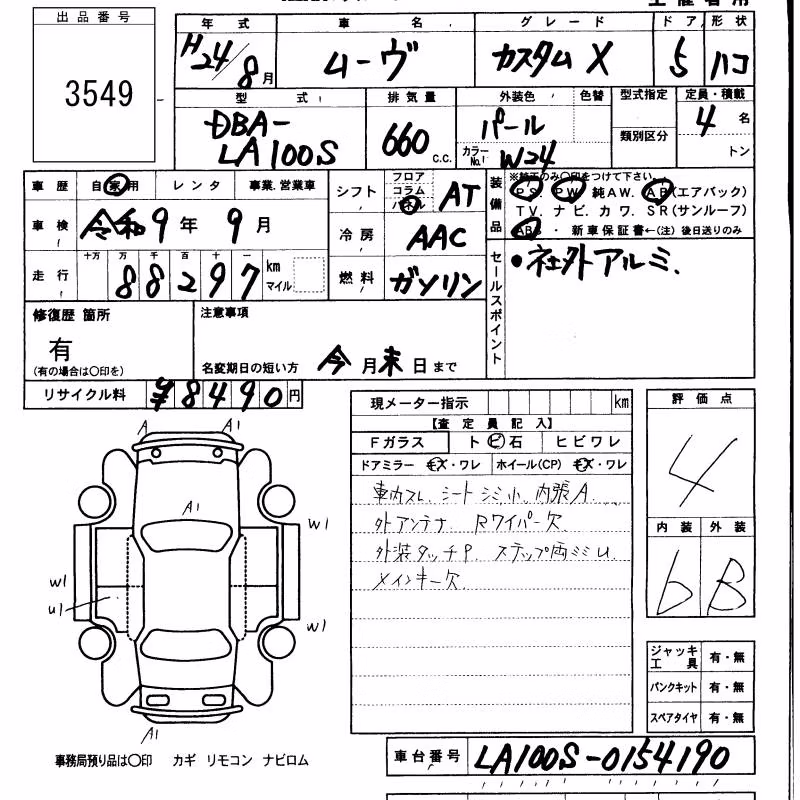 出品番号
3549
年式 車名 グレード ドア 形状
H24/8月 ムーヴ カスタムX 5 ハコ
型式 排気量 外装色 色替 型式指定 定員・積載
DBA-LA100S 660 c.c. パール カラーNo. W24 類別区分 4名 トン
車歴 自家用 レンタ 事業、営業車
車検 令和9年9月
走行 十万 万 千 百 十 一
88297 km マイル
シフト フロア コラム パネル AT
冷房 AAC
燃料 ガソリン
装備品
P.S. P.W 純A.W. A.B(エアバック)
T.V. ナビ. カワ. S.R(サンルーフ)
ABS・新車保証書←(注)後日送りのみ
セールスポイント
・社外アルミ.
修復歴 箇所
有
(有の場合は〇印を)
注意事項
名変期日の短い方 今月末日まで
リサイクル料 ¥8490円
現メーター指示 km
【査定員記入】
Fガラス トビ石 ヒビワレ
ドアミラー キズ・ワレ ホイール(CP) キズ・ワレ
車内スレ シートシミ小 内張A
外アンテナ Rワイパー欠
外装タッチP. ステップ両ミミU
メインキー欠
評価点
4
内装 外装
6 B
ジャッキ工具 有・無
パンクキット 有・無
スペアタイヤ 有・無
A A1
A1
W1
W1
U1
W1
A1
事務局預り品は〇印 カギ リモコン ナビロム
車台番号 LA100S-0154190